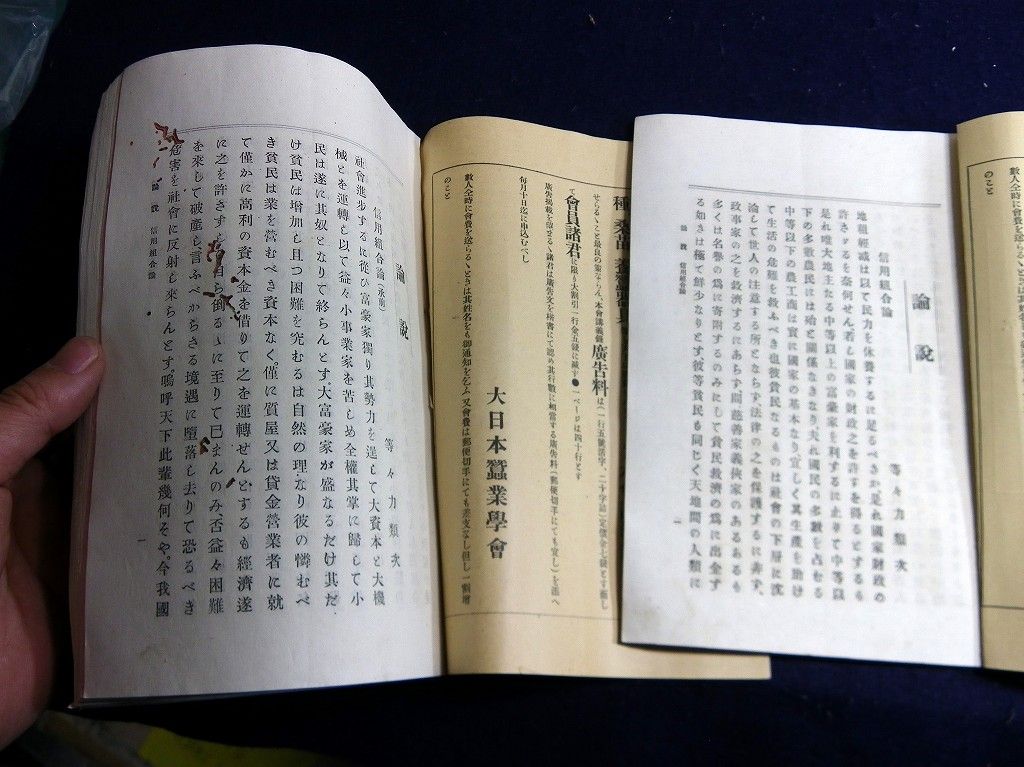 論說
信用組合論
等々力類次
地租輕減は以て民力を休養するに足るべきか是れ國家財政の
許さゞるを奈何せん若し國家の財政之を許すを得るとするも
是れ唯大地主なる中等以上の富豪家を利するに止りて中等以
下の多數農民には殆と關係なきなり夫れ國民の多數を占むる
中等以下の農工商は實に國家の基本なり宜しく其生產を助け
て生活の危難を救ふべき也彼貧民なるものは社會の下層に沈
淪して世人の注意する所とならす法律の之を保護するに非す、
政事家の之を救濟するにあらす間慈善家義俠家のあるあるも
多くは名譽の爲に寄附するのみにして貧民救濟の爲に出金す
る如きは極て鮮少なりとす、彼等貧民も同じく天地間の人類に
論說 信用組合論
一
種
せらるゝこと最良の策ならん、本會講義錄廣告料は(一行五號活字、二十字詰)定價金七錢とす但し
て會員諸君に限り大割引一行金五錢に減す●一ページは四十行とす
廣告揭載を望まるゝ諸君は廣告文を楷書にて認め其行數に相當する廣告料(郵便切手にても宜し)を添へ
每月十日迄に申込むべし
大日本蠶業學會
數人仝時に會費を送らるゝときは其姓名をも御通知を乞ふ 又會費は郵便切手にても差支なし但し一割增
のこと
論說
信用組合論(承前)
等々力類次
社會進步するに從ひ富豪家獨り其勢力を逞して大資本と大機
械とを運轉し以て益々小事業家を苦しめ全權其掌に歸して小
民は遂に其奴となりて終らんとす、大富豪家が盛なるだけ其だ
け貧民は增加し且つ困難を究むるは自然の理なり彼の憐むべ
き貧民は業を營むべき資本なく僅に質屋又は貸金營業者に就
て僅かに高利の資本金を借りて之を運轉せんとするも經濟遂
に之を許さす自ら倒るゝに至りて已まんのみ、否益々困難
を來して破產し言ふべからさる境遇に墮落し去りて恐るべき
危害を社會に反射し來らんとす。嗚呼天下此輩幾何そや、今我國
論說 信用組合論
一
數人仝時に會費を送らるゝときは其
のこと